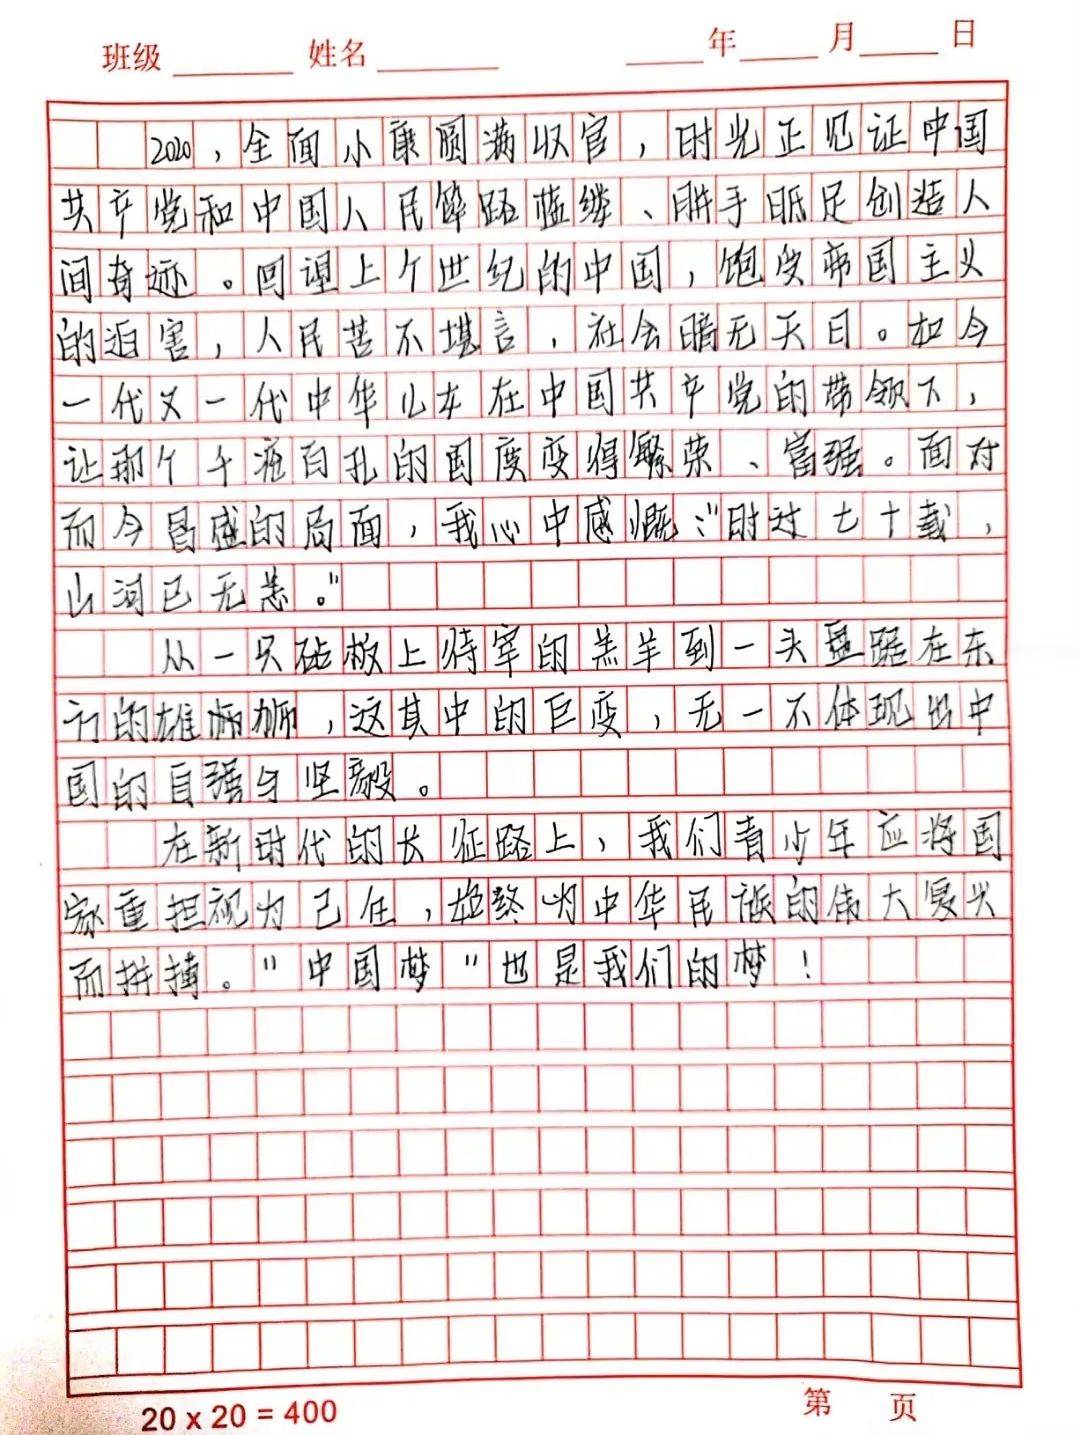 班级 姓名 年 月 日
2020，全面小康圆满收官，时光正见证中国
共产党和中国人民筚路蓝缕、胼手胝足创造人
间奇迹。回望上个世纪的中国，饱受帝国主义
的迫害，人民苦不堪言，社会暗无天日。如今
一代又一代中华儿女在中国共产党的带领下，
让那个千疮百孔的国度变得繁荣、富强。面对
而今昌盛的局面，我心中感慨："时过七十载，
山河已无恙。"
从一只砧板上待宰的羔羊到一头盘踞在东
方的雄狮，这其中的巨变，无一不体现出中
国的自强与坚毅。
在新时代的长征路上，我们青少年应将国
家重担视为己任，始终为中华民族的伟大复兴
而拼搏。"中国梦"也是我们的梦！
20 x 20 = 400
第 页